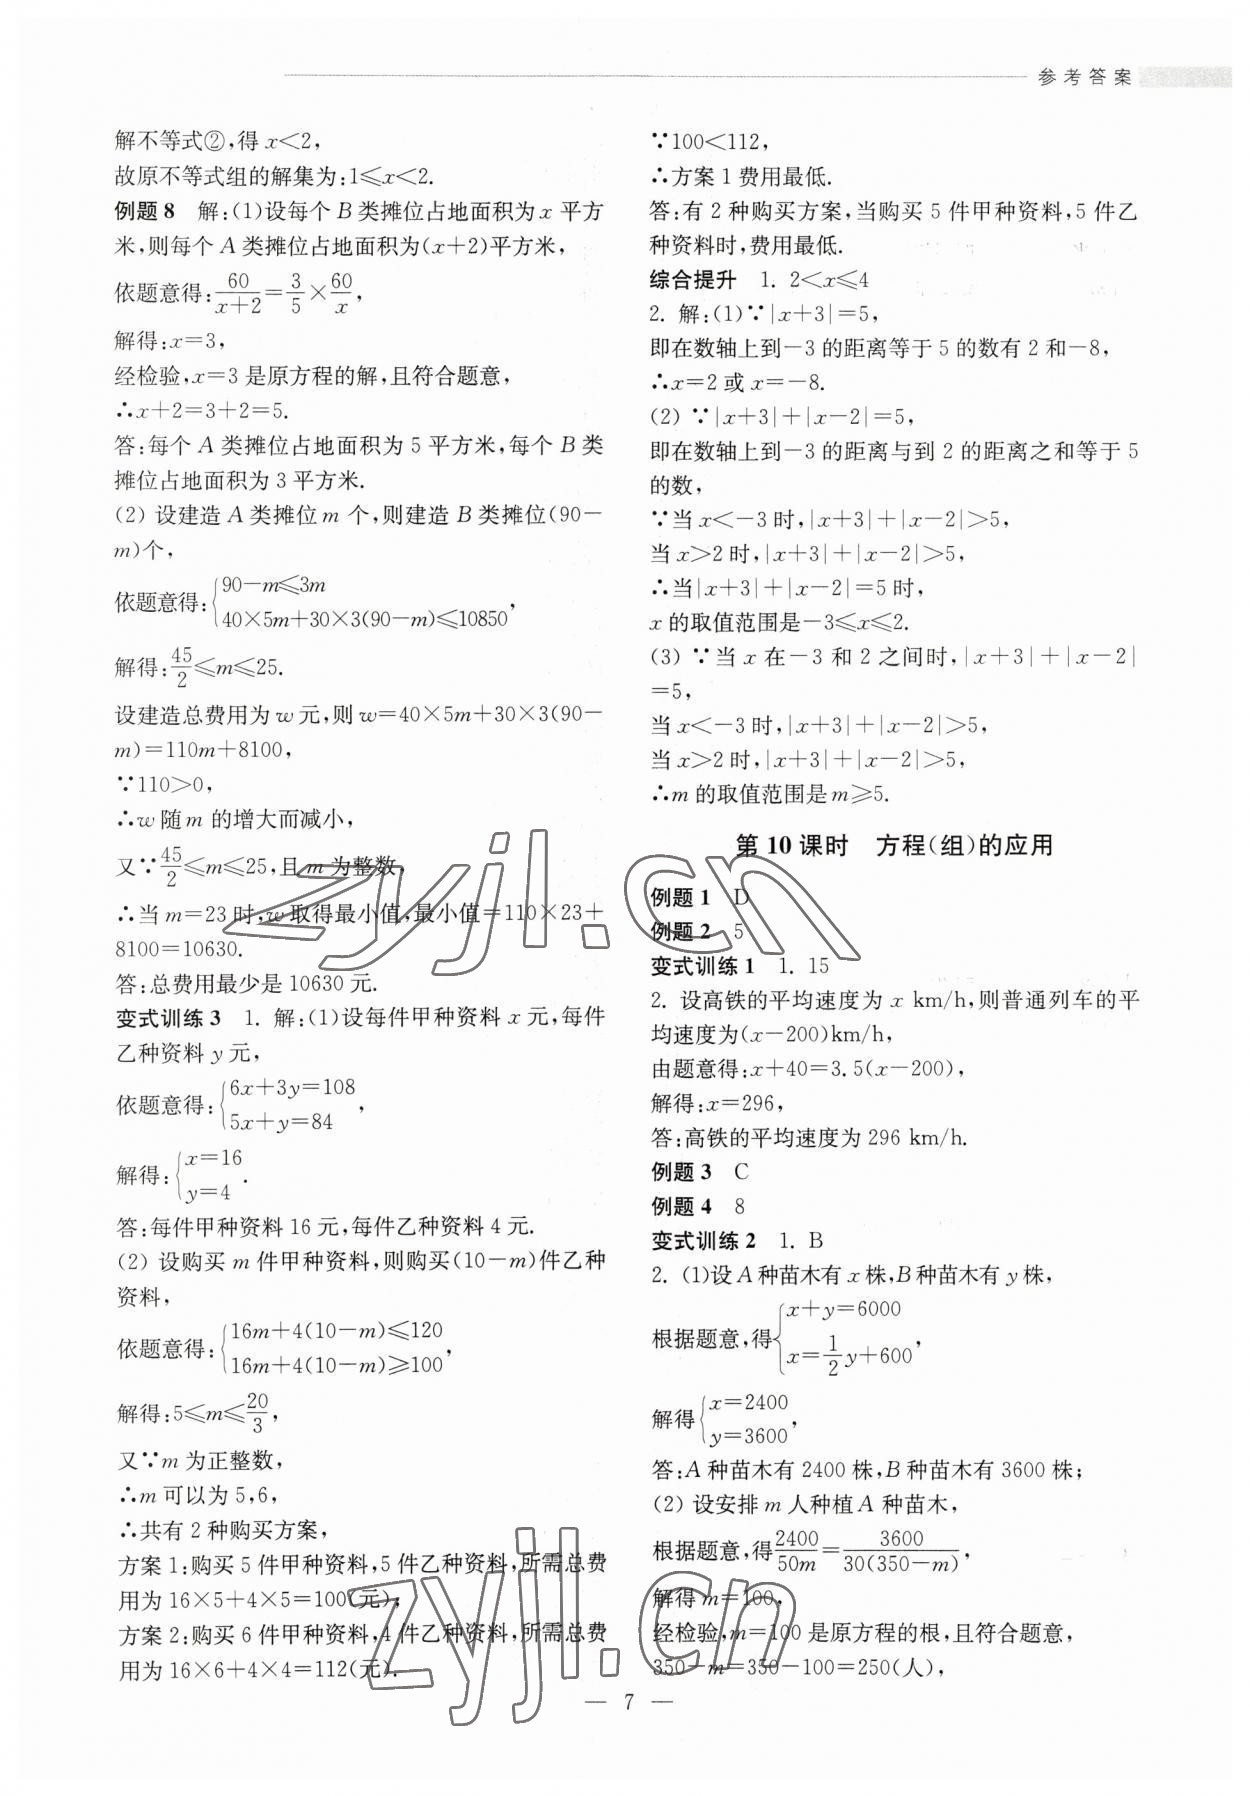 参考答案
解不等式②,得 x<2,
故原不等式组的解集为:1≤x<2.
例题 8 解:(1)设每个 B 类摊位占地面积为 x 平方
米,则每个 A 类摊位占地面积为(x+2)平方米,
依题意得:60/(x+2)=3/5×60/x,
解得:x=3,
经检验,x=3 是原方程的解,且符合题意,
∴x+2=3+2=5.
答:每个 A 类摊位占地面积为 5 平方米,每个 B 类
摊位占地面积为 3 平方米.
(2) 设建造 A 类摊位 m 个,则建造 B 类摊位(90-
m)个,
依题意得:{90-m≤3m
40×5m+30×3(90-m)≤10850,
解得:45/2≤m≤25.
设建造总费用为 w 元,则 w=40×5m+30×3(90-
m)=110m+8100,
∵110>0,
∴w 随 m 的增大而减小,
又∵45/2≤m≤25,且 m 为整数,
∴当 m=23 时,w 取得最小值,最小值=110×23+
8100=10630.
答:总费用最少是 10630 元.
变式训练 3 1. 解:(1)设每件甲种资料 x 元,每件
乙种资料 y 元,
依题意得:{6x+3y=108
5x+y=84,
解得:{x=16
y=4.
答:每件甲种资料 16 元,每件乙种资料 4 元.
(2) 设购买 m 件甲种资料,则购买(10-m)件乙种
资料,
依题意得:{16m+4(10-m)≤120
16m+4(10-m)≥100,
解得:5≤m≤20/3,
又∵m 为正整数,
∴m 可以为 5,6,
∴共有 2 种购买方案,
方案 1:购买 5 件甲种资料,5 件乙种资料,所需总费
用为 16×5+4×5=100(元);
方案 2:购买 6 件甲种资料,4 件乙种资料,所需总费
用为 16×6+4×4=112(元).
∵100<112,
∴方案 1 费用最低.
答:有 2 种购买方案,当购买 5 件甲种资料,5 件乙
种资料时,费用最低.
综合提升 1. 2<x≤4
2. 解:(1)∵|x+3|=5,
即在数轴上到-3 的距离等于 5 的数有 2 和-8,
∴x=2 或 x=-8.
(2) ∵|x+3|+|x-2|=5,
即在数轴上到-3 的距离与到 2 的距离之和等于 5
的数,
∵当 x<-3 时,|x+3|+|x-2|>5,
当 x>2 时,|x+3|+|x-2|>5,
∴当|x+3|+|x-2|=5 时,
x 的取值范围是-3≤x≤2.
(3) ∵当 x 在-3 和 2 之间时,|x+3|+|x-2|
=5,
当 x<-3 时,|x+3|+|x-2|>5,
当 x>2 时,|x+3|+|x-2|>5,
∴m 的取值范围是 m≥5.
第 10 课时 方程(组)的应用
例题 1 D
例题 2 5
变式训练 1 1. 15
2. 设高铁的平均速度为 x km/h,则普通列车的平
均速度为(x-200)km/h,
由题意得:x+40=3.5(x-200),
解得:x=296,
答:高铁的平均速度为 296 km/h.
例题 3 C
例题 4 8
变式训练 2 1. B
2. (1)设 A 种苗木有 x 株,B 种苗木有 y 株,
根据题意,得{x+y=6000
x=1/2y+600,
解得{x=2400
y=3600,
答:A 种苗木有 2400 株,B 种苗木有 3600 株;
(2) 设安排 m 人种植 A 种苗木,
根据题意,得2400/50m=3600/30(350-m),
解得 m=100,
经检验,m=100 是原方程的根,且符合题意,
350-m=350-100=250(人),
— 7 —
zyjl.cn
zyjl.cn